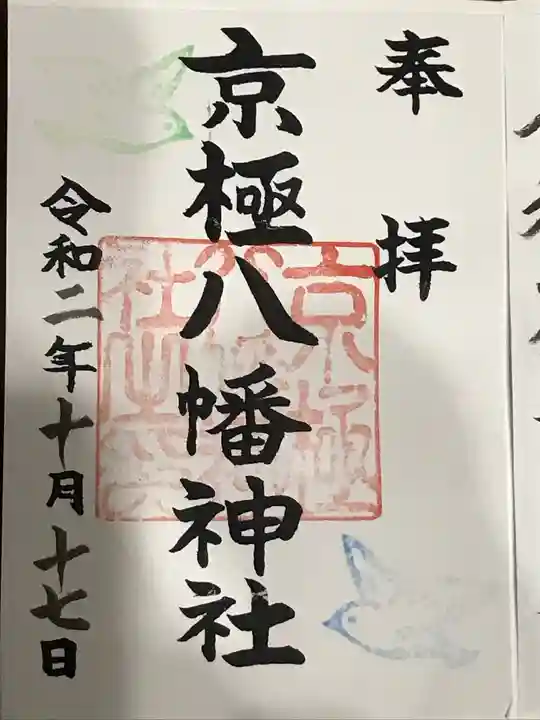 奉拝
京極八幡神社
令和二年十月十七日
京極
社之